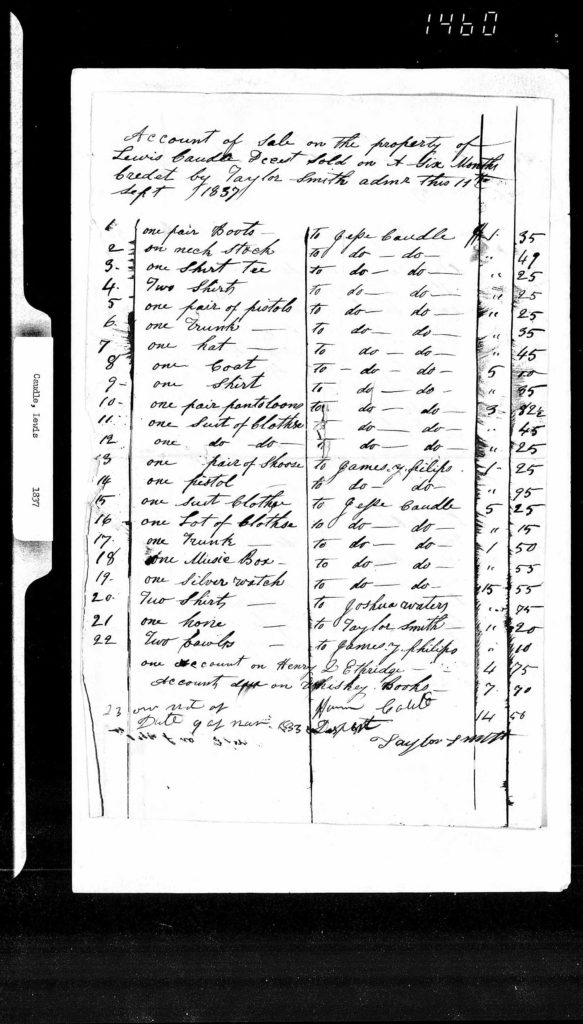 1460
Caudle, Lewis 1837
Account of Sale on the property of
Lewis Caudle Decest Sold on A Six Months
Credet by Taylor Smith admr this 11th
Sept 1837
1 one pair Boots — to Jesse Caudle $1. 35
2 on neck stock to do — do — " 49
3. one Shirt Tee to do — do — " 25
4. Two Shirts to do — do — " 25
5 one pair of pistols to do — do — " 25
6. one Trunk — to do — do — " 35
7 one hat — to do — do — " 45
8 one Coat to — do — do — 5 10
9 — one Shirt to do — do — " 35
10 — one pair pantoloons to do — do 3 — 32½
11. one Suit of Clothse to do — do — " 45
12 one do do — to do — do — " 25
13 one pair of Shoose to James. y. pilips 1 — 25
14 one pistol — to do — do — " 95
15 one suit Clothse to Jesse Caudle 5 25
16 one Lot of Clothse to do — do — " 15
17. one Trunk to do — do — 1 50
18 one Music Box — to do — do — " 55
19. one Silver watch to do — do — 15 55
20. Two Shirts — to Joshua waters " 75
21 one hone — to Taylor Smith — " 20
22 Two — to James. y. philips " 10
one account on Henry Ethridge 4 75
Account on Whiskey Books — 7. 70
23 on not of
Date 9 of nov. 14 50
Taylor Smith